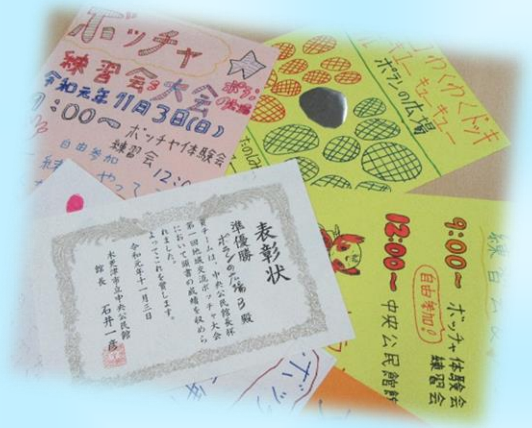 ボッチャ
練習会&大会
令和元年11月3日(日)
:00〜 ボッチャ体験会
練習会
自由参加
12:0
わくわくドッキ
キュー キューキュー
ボランの広場
表彰状
準優勝
ボランの広場B殿
貴チームは、中央公民館長杯
第一回地域交流ボッチャ大会
において頭書の成績を収めら
れました。
よってこれを賞します。
令和元年十一月三日
木更津市立中央公民館
館長 石井一彦
9:00〜 ボッチャ体験会
練習会
自由参加!
12:00〜 中央公民館館